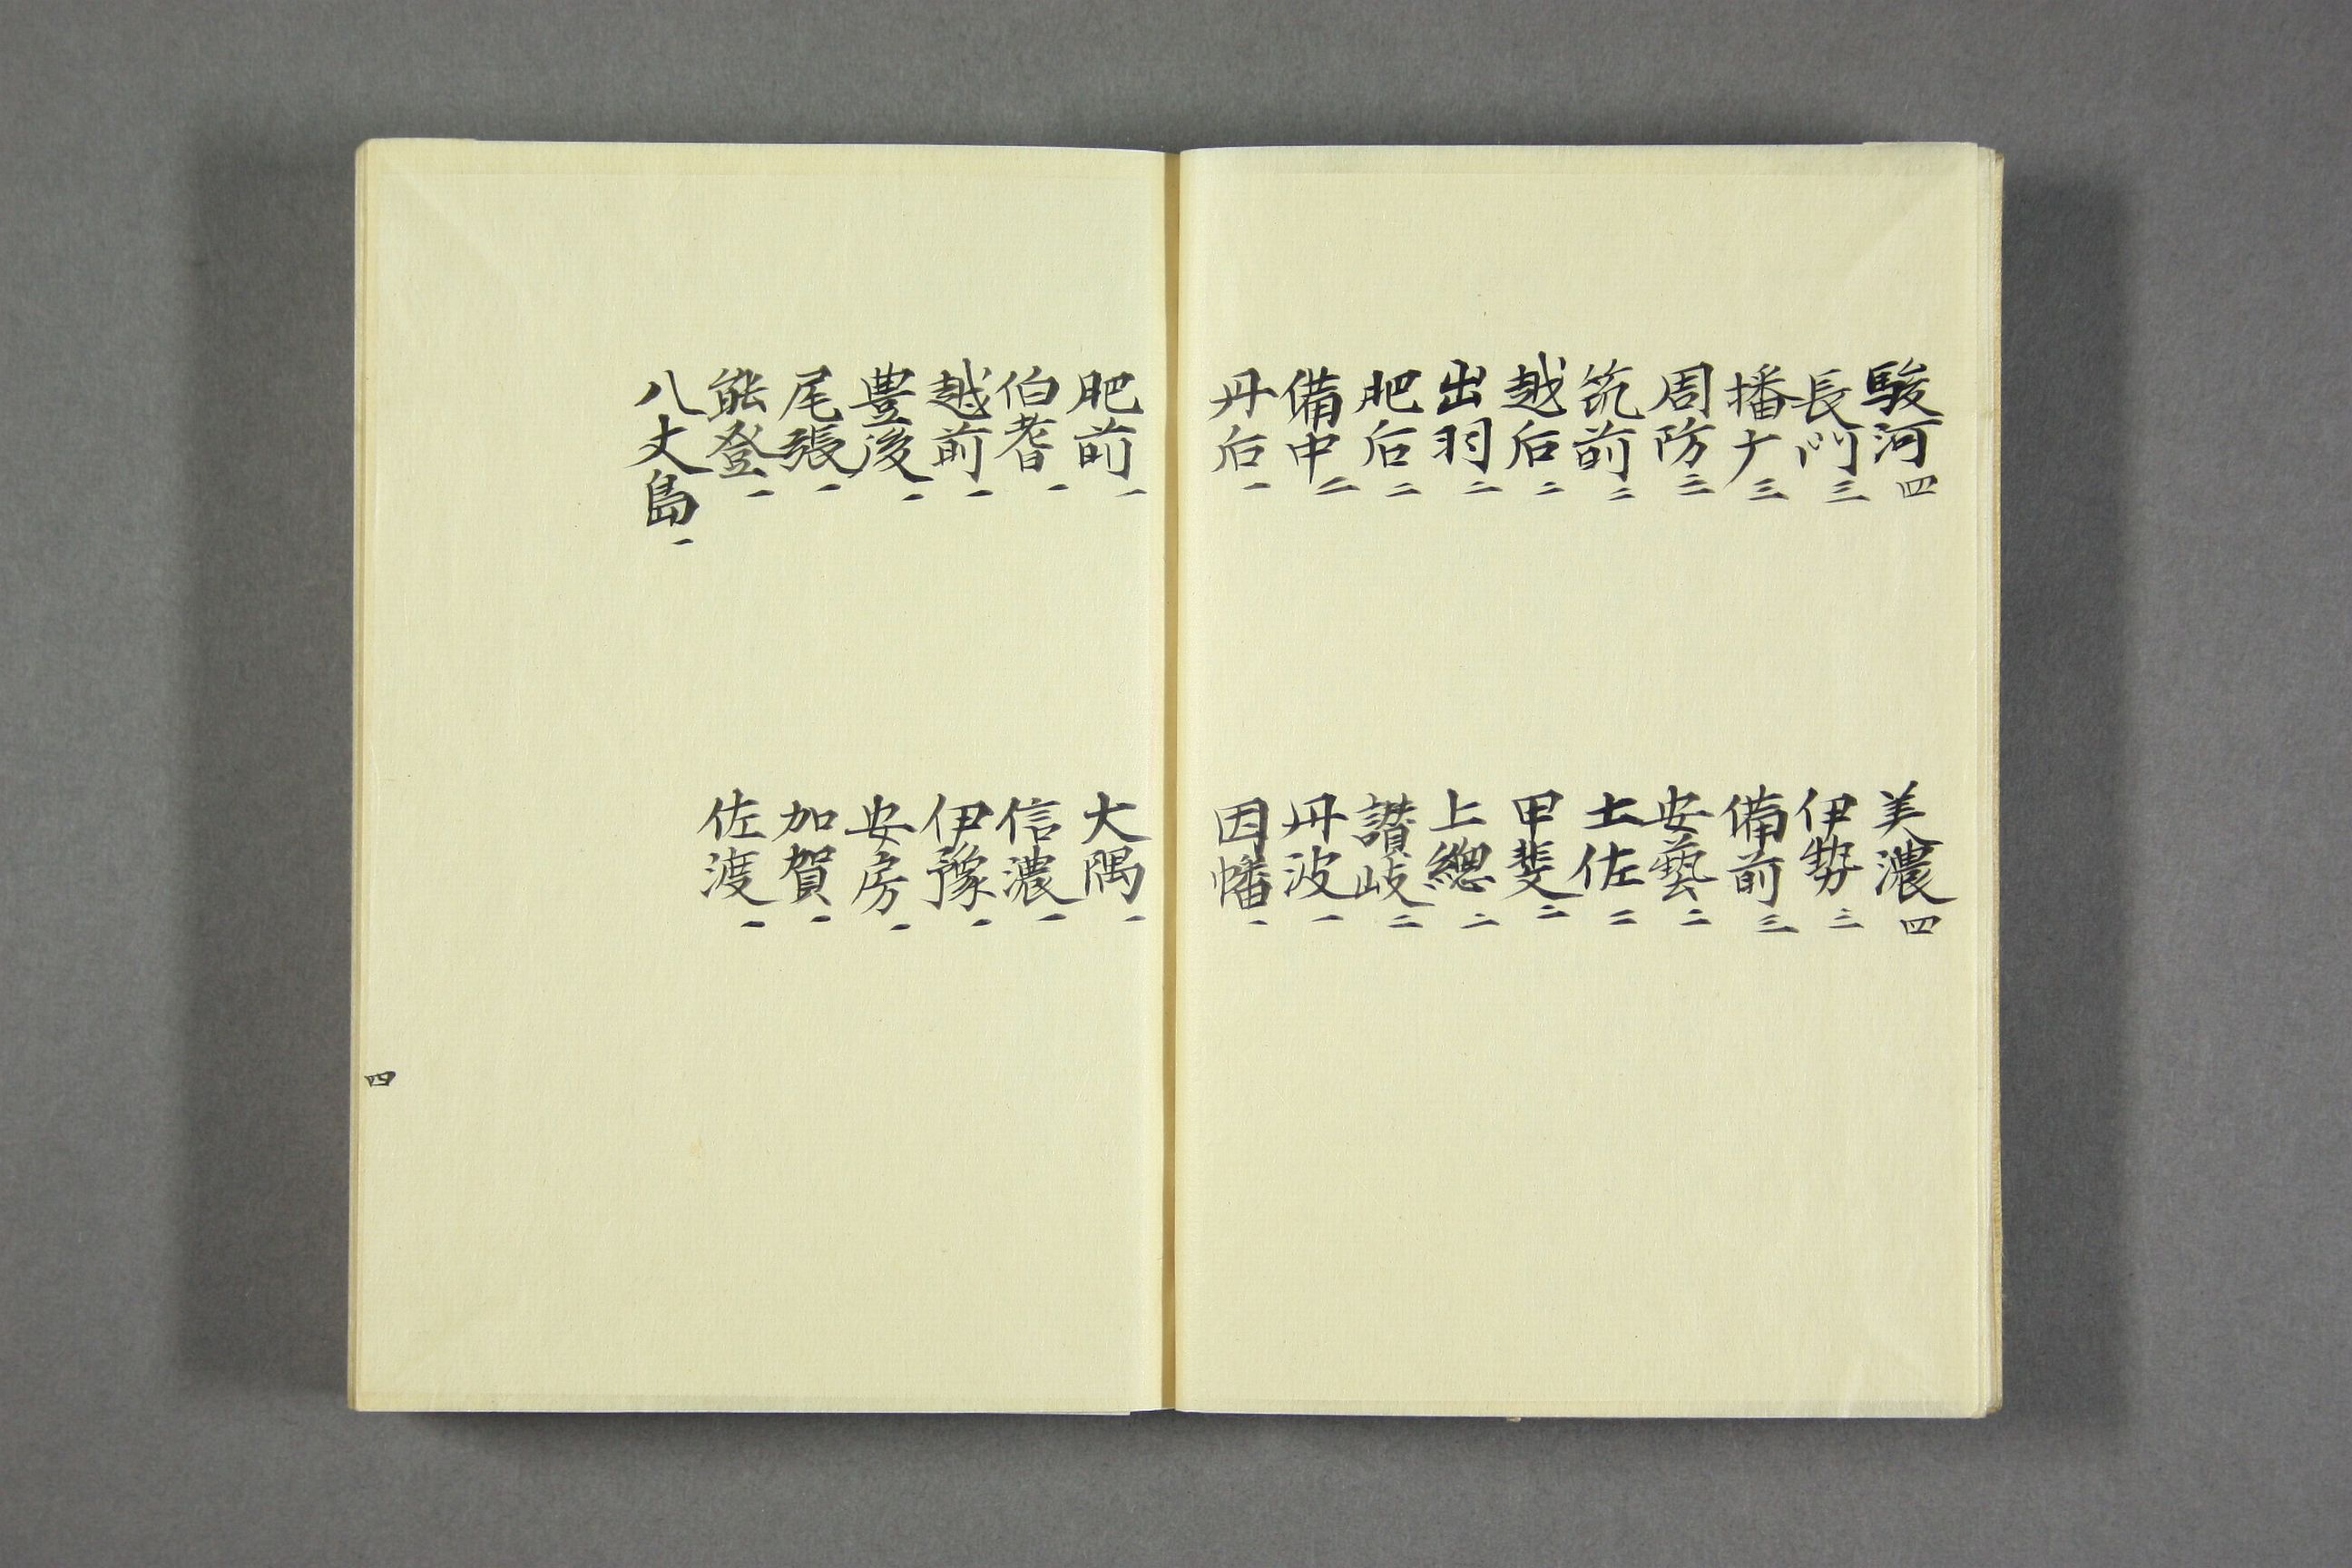 駿河四 美濃四
長門三 伊勢三
播广三 備前三
周防三 安藝二
筑前二 土佐二
越后二 甲斐二
出羽二 上總二
肥后二 讃岐二
備中二 丹波一
丹后一 因幡一
肥前一 大隅一
伯耆一 信濃一
越前一 伊豫一
豊後一 安房一
尾張一 加賀一
能登一 佐渡一
八丈島一
四